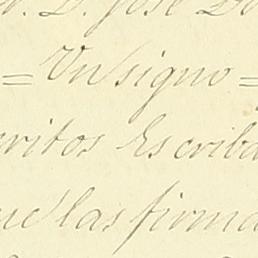 D. José Do
= Un signo =
ritos Escriba
ue las firma